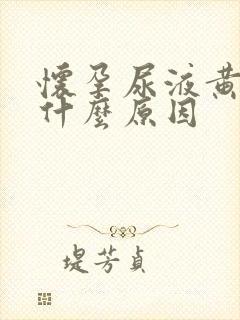 懷孕尿液黃
什麼原因
堤芳貞